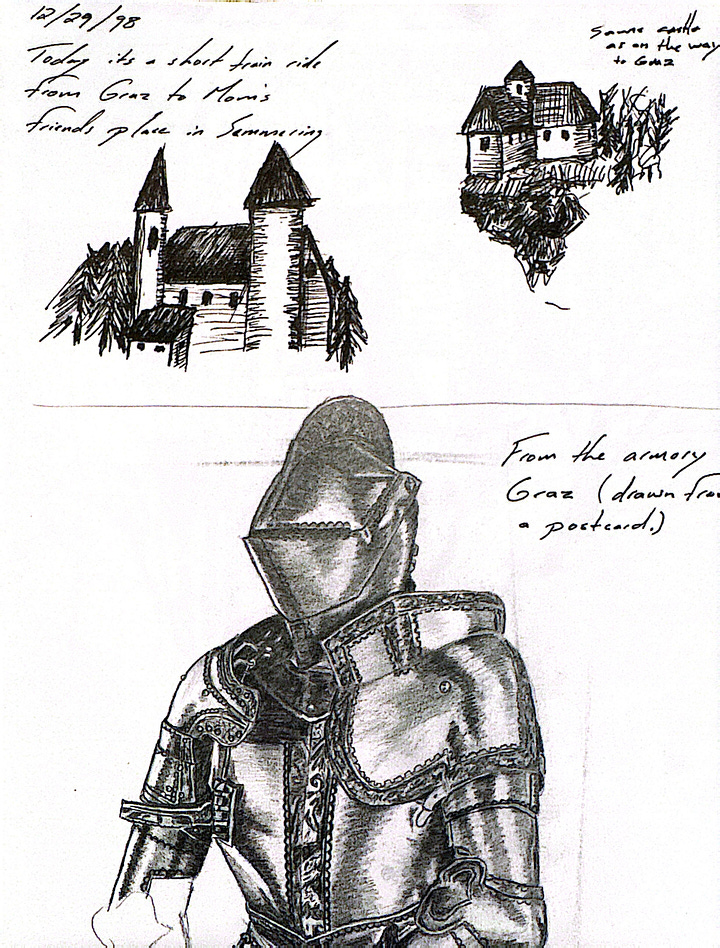 12/29/98
Today its a short train ride
from Graz to Mom's
friends place in Semmering
Same castle
as on the way
to Graz
From the armory
Graz (drawn fro
a postcard.)